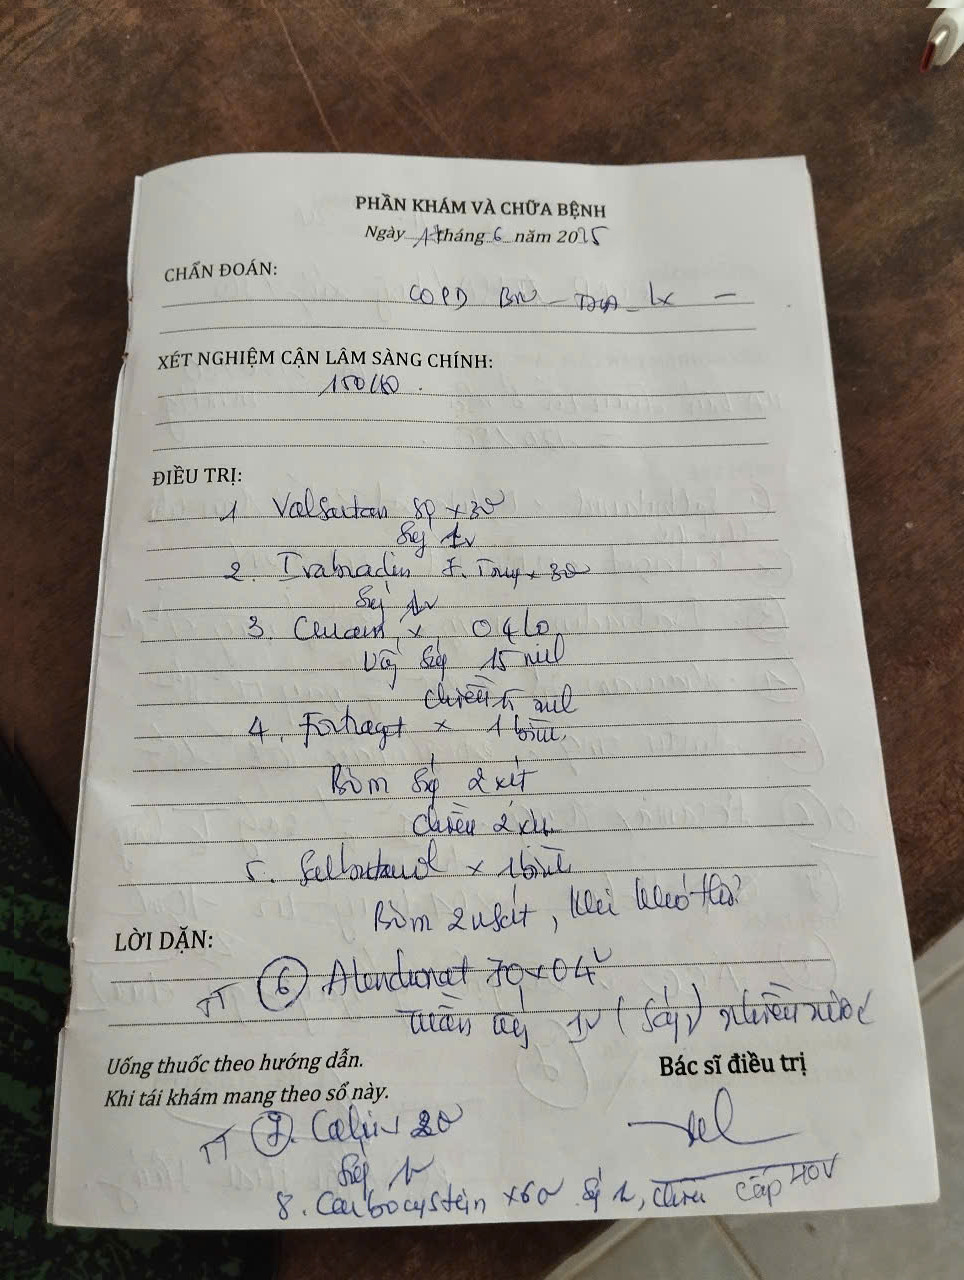 PHẦN KHÁM VÀ CHỮA BỆNH
Ngày 17 tháng 6 năm 2025
CHẨN ĐOÁN:
COPD BN - THA
XÉT NGHIỆM CẬN LÂM SÀNG CHÍNH:
ĐIỀU TRỊ:
1 Valsartan 80 x 30v
Sáng 1v
2. Ivabradin x 30v
Sáng 1v
3. x 04 lọ
Uống Sáng 15 ml
chiều 5 ml
4. x 1 bình
Bơm Sáng 2 xịt
chiều 2 xịt
5. Salbutamol x 1 bình
Bơm 2 nhát, khi khó thở
LỜI DẶN:
TT 6 Alendronat 70 x 04v
tuần uống 1v (Sáng) nhiều nước
Uống thuốc theo hướng dẫn.
Bác sĩ điều trị
Khi tái khám mang theo sổ này.
TT 7. 30v
Sáng 1v
8. Carbocystein x 60v Sáng 1v, chiều